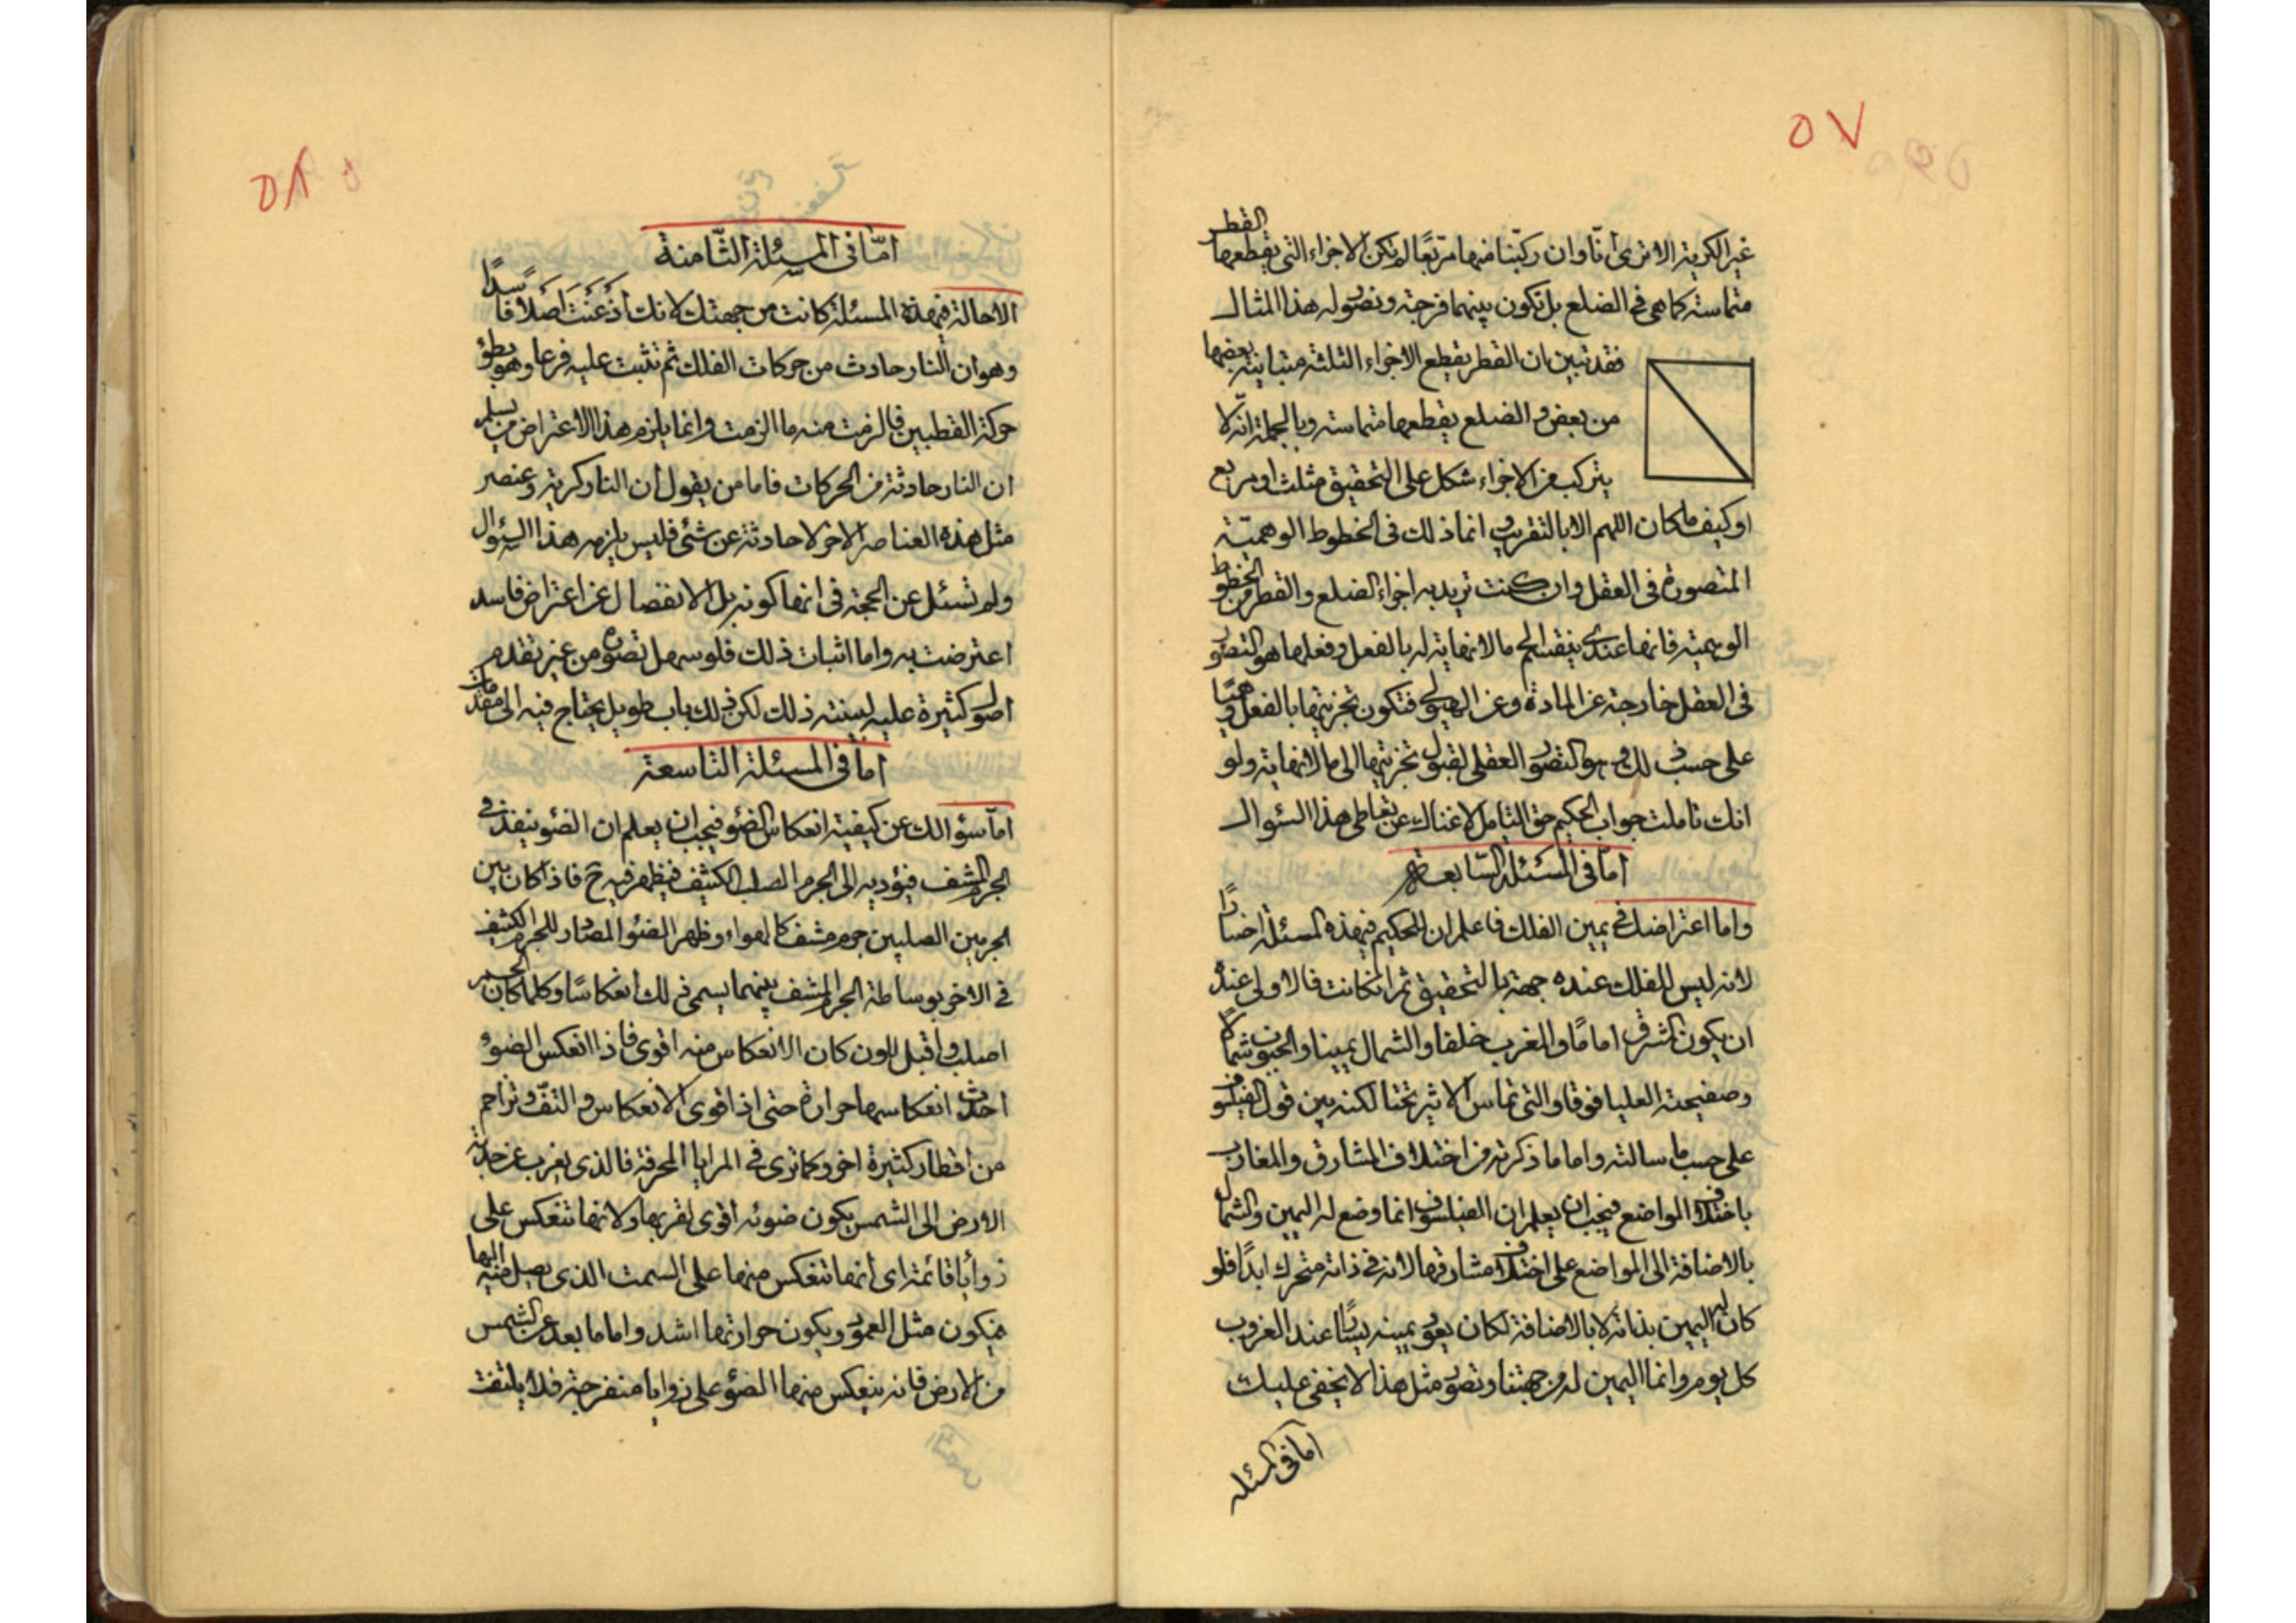 ٥٧
غير الكرية الا ترى انّا وان ركبنا منها مربّعًا لم تكن الاجزاء التى يقطعها القطر
متماسة كما هى فى الضلع بل تكون بينهما فرجة ونصوّر له هذا المثال
فقد تبين ان القطر يقطع الاجزاء الثلثة متباينة بعضها
من بعض و الضلع يقطعها متماسة وبالجملة انّه لا
يتركب من الاجزاء شكل على التحقيق مثلث او مربع
او كيف ما كان اللهم الا بالتقريب و انما ذلك فى الخطوط الوهميّة
المتصورة فى العقل وان كنت تريد به اجزاء الضلع والقطر من الخطوط
الوهمية فانها عندى ينقسم الى ما لا نهاية له بالفعل وفعلها هو التصور
فى العقل خارجة عن المادة وعن الهيولى فتكون تجزيتها بالفعل وهميّا
على حسب ذلك و هو كتصور العقلى لقبول تجزيتها الى ما لا نهاية ولو
انك تاملت جواب الحكيم حق التامل لاغناك عن تعاطى هذا السئوال
امّا فى المسئلة السّابعة
واما اعتراضك فى يمين الفلك فاعلم ان للحكيم فى هذه المسئلة
لانه ليس للفلك عنده جهة بالتحقيق ثم ان كانت فالاولى عنده
ان يكون المشرق امامًا و المغرب خلفا و الشمال يمينا و الجنوب شمالا
وصفيحته العليا فوقا و التى تماس الاثير تحتا لكنه بين قول الفيلسوف
على حسب ما سالته و اما ما ذكرته من اختلاف المشارق والمغارب
باختلاف المواضع فيجب ان يعلم ان الفيلسوف انما وضع له اليمين والشمال
بالاضافة الى المواضع على اختلاف مشارقها لانه فى ذاته متحرك ابدًا فلو
كان له اليمين بذاته لا بالاضافة لكان يعود يمينه يسارًا عند الغروب
كل يوم وانما اليمين له من جهتنا وتصوّر مثل هذا لا يخفى عليك
اما فى المسئله
٥٨
امّا فى المسئلة الثّامنة
الاحالة فى هذه المسئلة كانت من جهتك لانك اذعَنْتَ اَصْلًا فاسدًا
وهو ان النار حادث من حركات الفلك ثم تثبت عليه فرعا وهو بطؤ
حركة القطبين فالزمت منه ما الزمت وانما يلزم هذا الاعتراض من يسلم
ان النار حادثة من الحركات فاما من يقول ان النار كرية وعنصر
مثل هذه العناصر الاخر لا حادثة عن شئ فليس يلزمه هذا السئوال
ولم تسئل عن الحجة فى انها كونه بل الانفصال عن اعتراض فاسد
اعترضت به واما اثبات ذلك فلو سهل تصوره من غير تقدم
اصول كثيرة عليه لبينته ذلك لكن ذلك باب طويل يحتاج فيه الى مقدمات
امّا فى المسئلة التاسعة
امّا سئوالك عن كيفية انعكاس الضوء فيجب ان يعلم ان الضوء ينفذ فى
الجرم المشف فيؤديه الى الجرم الصلب الكثيف فيظهر فيه ح فاذا كان بين
الجرمين الصلبين جرم مشف كالهواء وظهر الضوء المصادر للجرم الكثيف
فى الاخر بوساطة الجرم المشف بينهما يسمى ذلك انعكاسًا وكلما كان الجسم
اصلب و اقبل للون كان الانعكاس منه اقوى فاذا انعكس الضوء
احدث انعكاسها حرارة حتى اذا قوى الانعكاس و التفّ و تزاحم
من اقطار كثيرة اخر وكما ترى فى المرايا المحرقة فالذى يقرب عن حدبة
الارض الى الشمس يكون ضوئه اقوى لقربها ولانها تنعكس على
زوايا قائمة اى انها تنعكس منها على السمت الذى يصل منه اليها
فيكون مثل العمود ويكون حرارتها اشد واما ما بعد عن الشمس
من الارض فانه ينعكس منها الضوء على زوايا منفرجة فلا يلتفت